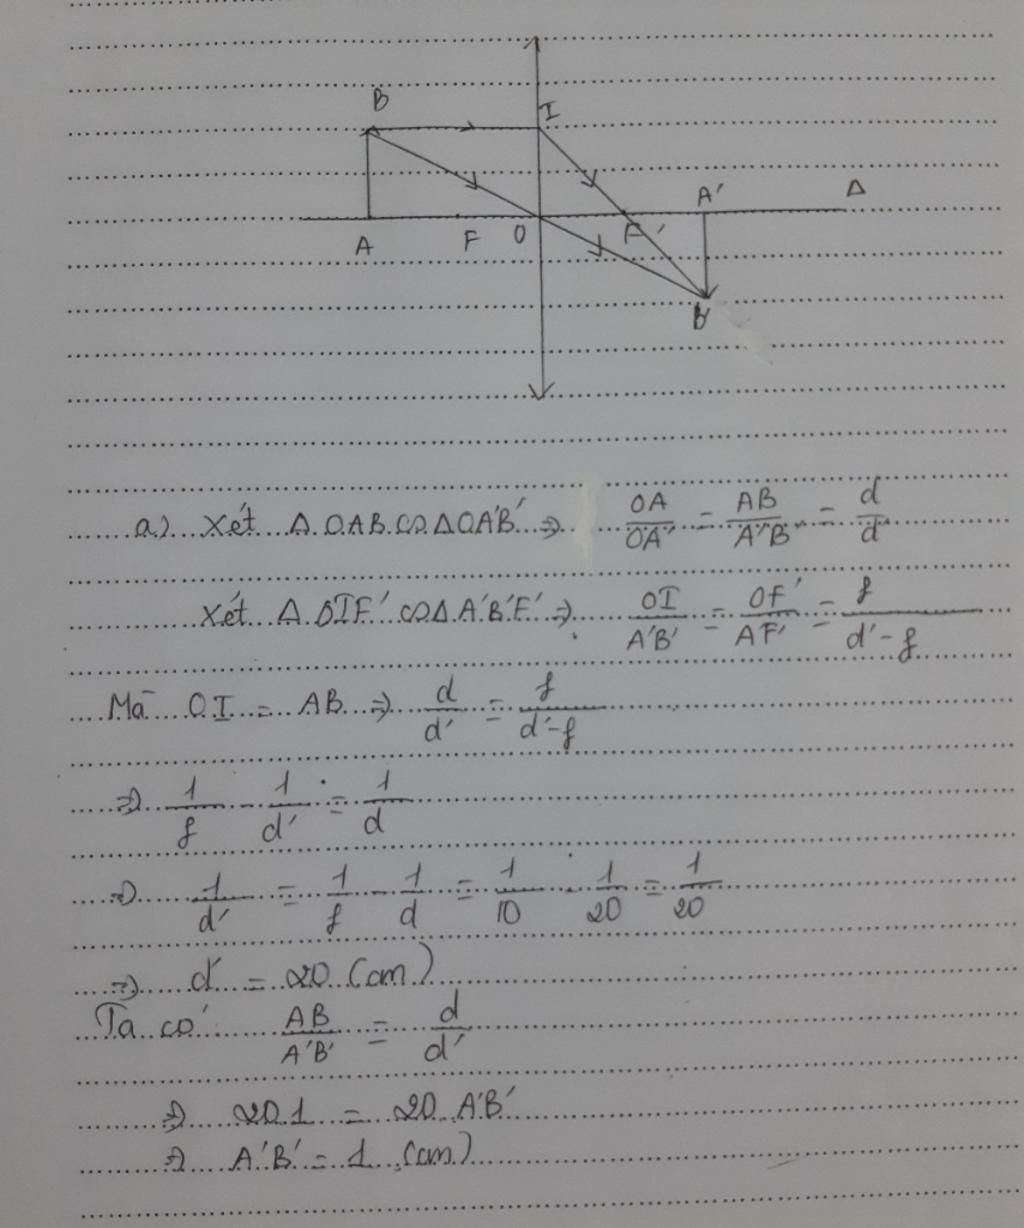 B
I
A' Δ
A F O F'
B'
a) Xét Δ OAB ∽ Δ OA'B' => OA/OA' = AB/A'B' = d/d'
Xét Δ OIF' ∽ Δ A'B'F' => OI/A'B' = OF'/A'F' = f/d'-f
Mà OI = AB => d/d' = f/d'-f
=> 1/f - 1/d' = 1/d
=> 1/d' = 1/f - 1/d = 1/10 - 1/20 = 1/20
=> d' = 20 (cm)
Ta có AB/A'B' = d/d'
=> 20.1 = 20 A'B'
=> A'B' = 1 (cm)